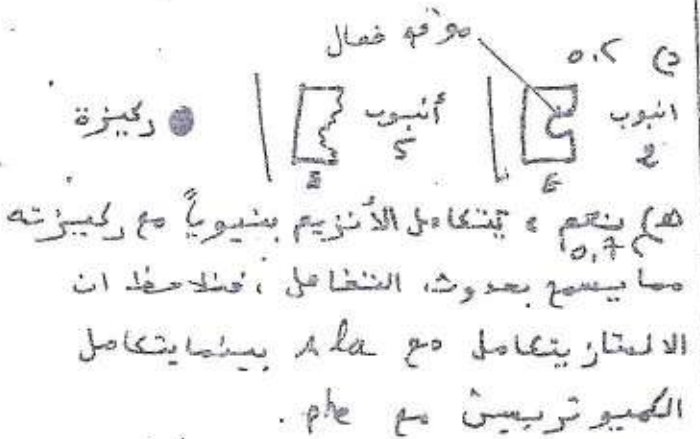 موقع فعال
د) 0.5
انبوب 2 E
أنبوب 5 E
ركيزة
هـ) نعم ، يتكامل الأنزيم بنيوياً مع ركيزته
0.75
مما يسمح بحدوث التفاعل ، فنلاحظ ان
الالستاز يتكامل مع Ala بينما يتكامل
الكميوتربسين مع phe .